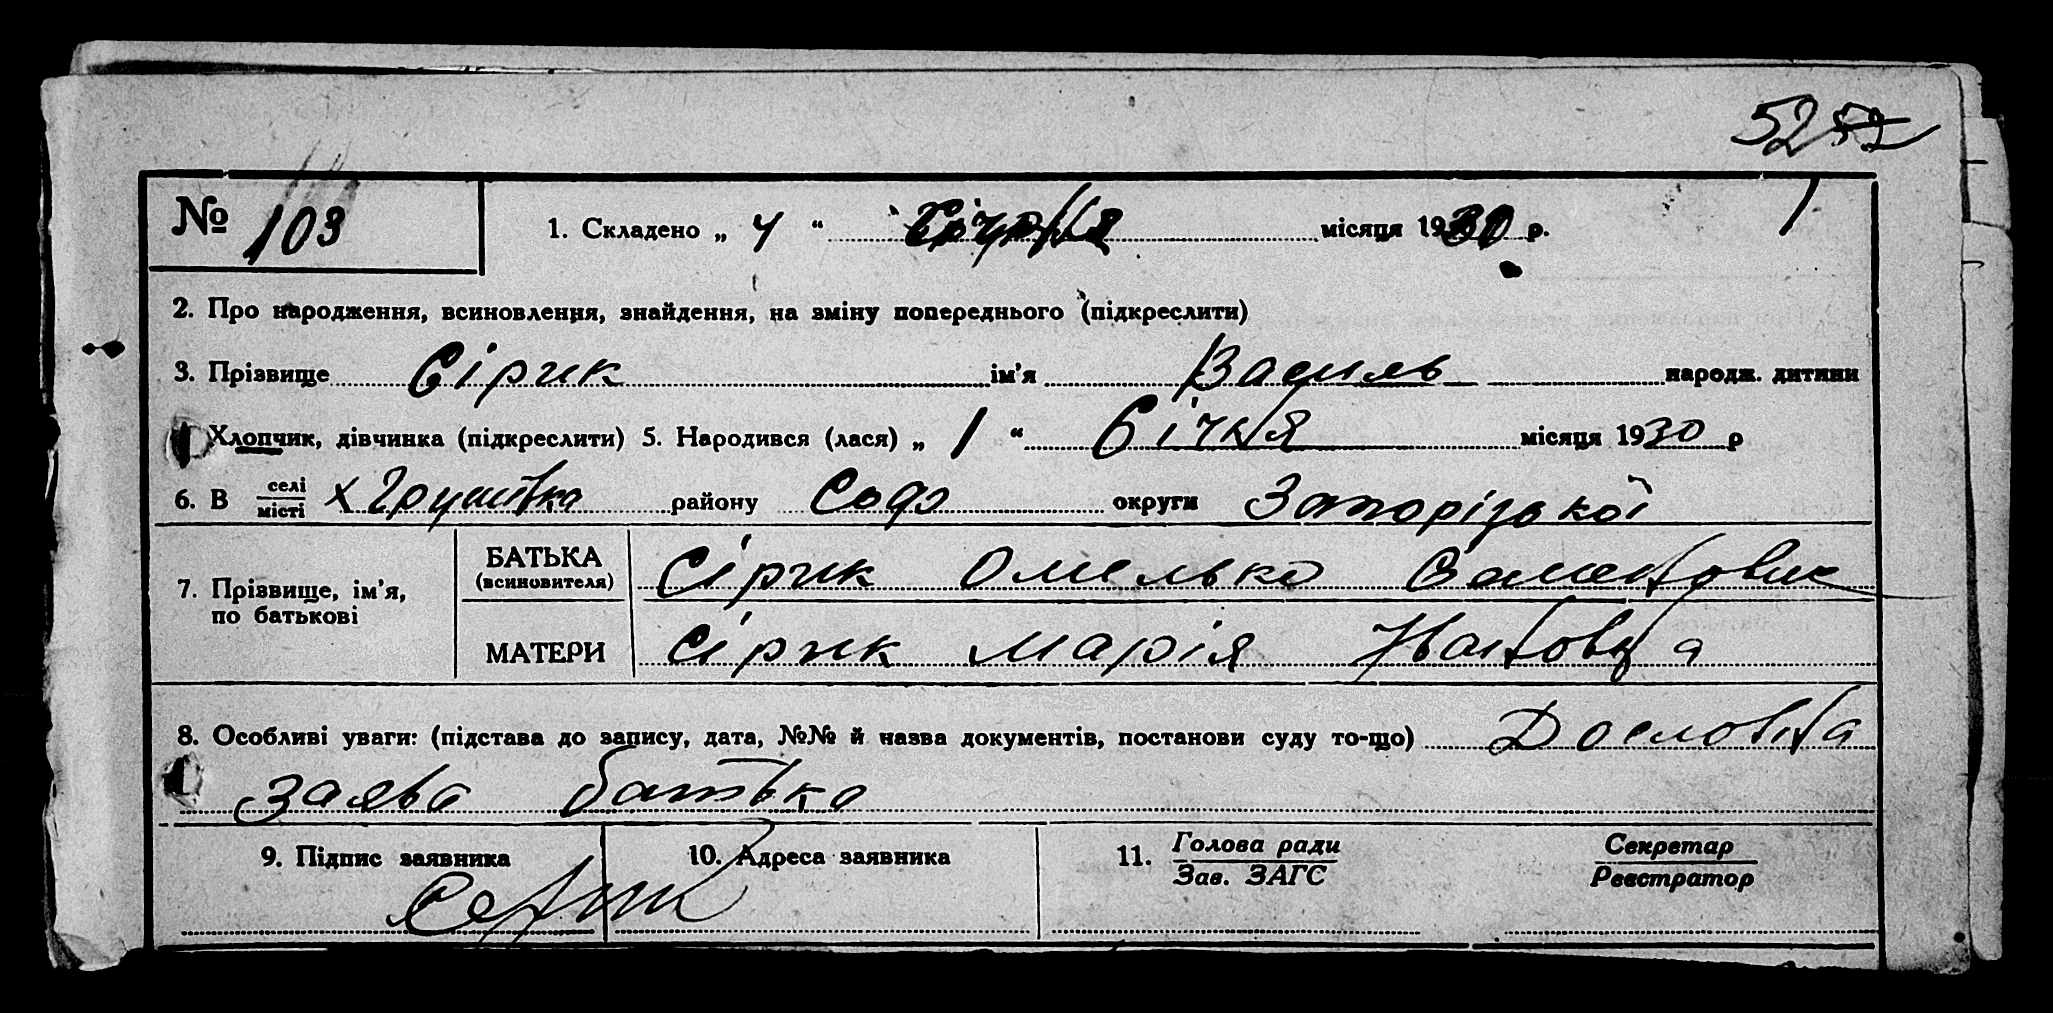 52
№ 103 1. Складено „ 4 “ Січня місяця 1930 р. 1
2. Про народження, всиновлення, знайдення, на зміну попереднього (підкреслити)
3. Прізвище Сірик ім’я Василь народж. дитини
Хлопчик, дівчинка (підкреслити) 5. Народився (лася) „ 1 “ Січня місяця 1930 р
6. В селі/місті х Грушівка району Софо округи Запорізької
7. Прізвище, ім’я, по батькові
БАТЬКА (всиновителя) Сірик Омелько Семенович
МАТЕРИ Сірик Марія Ивановна
8. Особливі уваги: (підстава до запису, дата, №№ й назва документів, постанови суду то-що) Дословна
заява батька
9. Підпис заявника 10. Адреса заявника 11. Голова ради/Зав. ЗАГС Секретар/Реєстратор